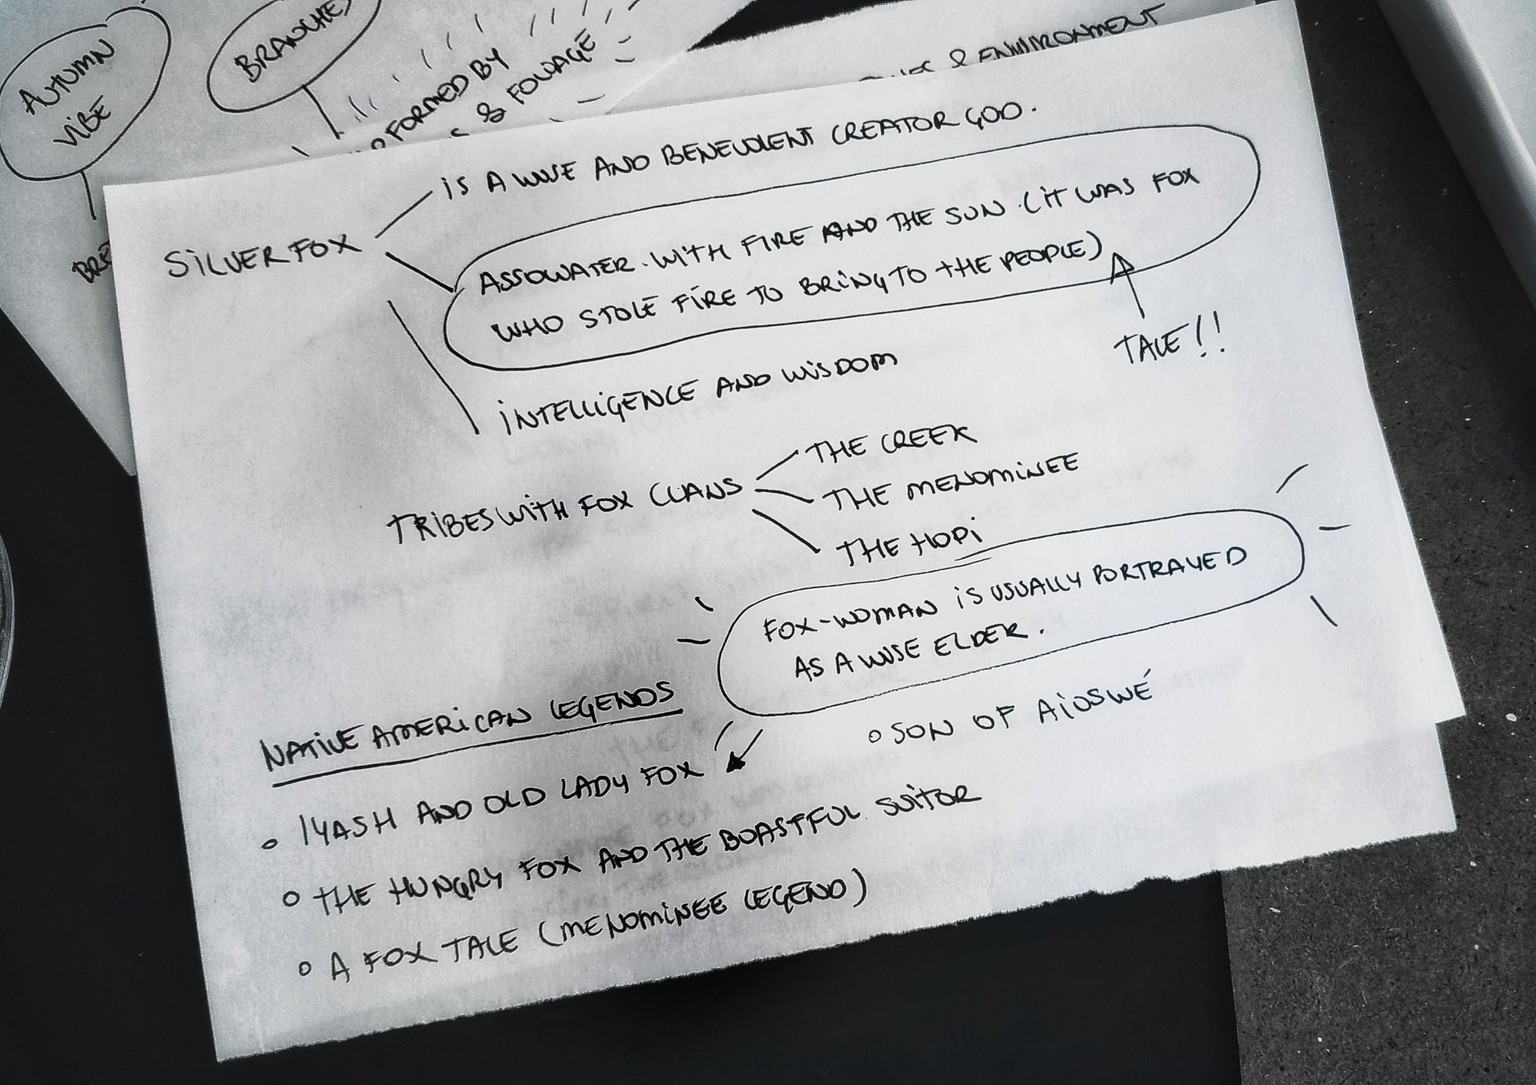 AUTUMN
VIBE
BRANCHES
FORMED BY
& FOLIAGE
& ENVIRONMENT
BRE
SILVER FOX
IS A WISE AND BENEVOLENT CREATOR GOD.
ASSOWATER. WITH FIRE AND THE SUN (IT WAS FOX
WHO STOLE FIRE TO BRING TO THE PEOPLE)
TALE!!
INTELLIGENCE AND WISDOM
TRIBES WITH FOX CLANS
THE CREEK
THE MENOMINEE
THE HOPI
FOX-WOMAN IS USUALLY PORTRAYED
AS A WISE ELDER.
NATIVE AMERICAN LEGENDS
SON OF AIOSWÉ
IYASH AND OLD LADY FOX
THE HUNGRY FOX AND THE BOASTFUL SUITOR
A FOX TALE (MENOMINEE LEGEND)